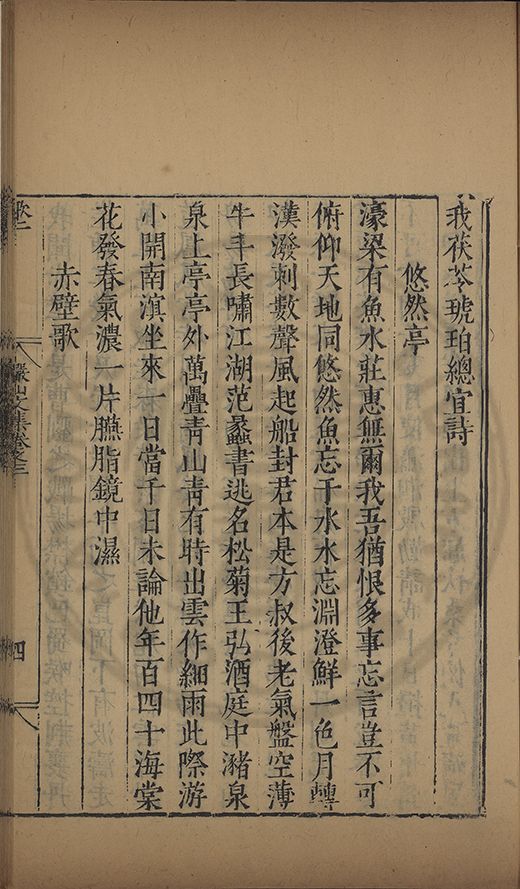 我茯苓琥珀總宜詩
悠然亭
濠梁有魚水莊惠無爾我吾猶恨多事忘言豈不可
俯仰天地同悠然魚忘于水水忘淵澄鮮一色月轉
漢潑刺數聲風起船封君本是方叔後老氣盤空薄
牛斗長嘯江湖范蠡書逃名松菊王弘酒庭中瀦泉
泉上亭亭外萬疊青山青有時出雲作細雨此際游
小開南濱坐來一日當千日未論他年百四十海棠
花發春氣濃一片臙脂鏡中濕
赤壁歌
四